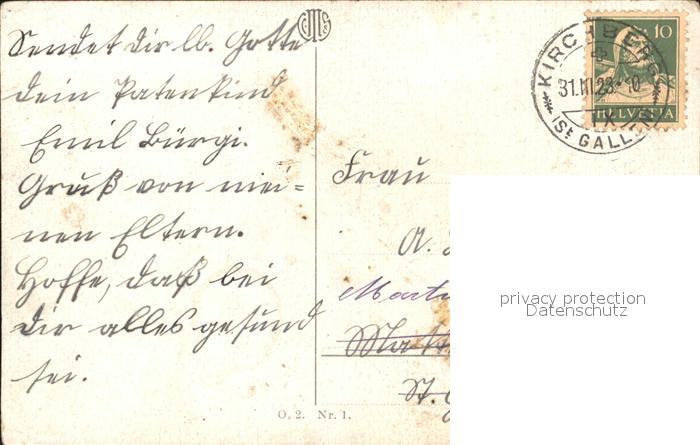 Sendet dir lb. Gotte
dein Patenkind
Emil Bürgi.
Gruß von mei=
nen Eltern.
Hoffe, daß bei
dir alles gesund
sei.
O. 2. Nr. 1.
KIRCHBERG
31.III.23
(ST GALLEN)
10
HELVETIA
Frau
A.
St.
privacy protection
Datenschutz